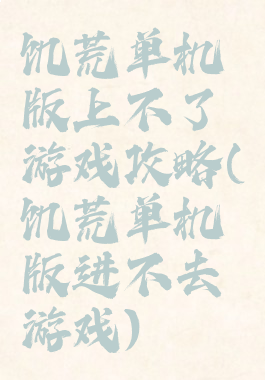 饥荒单机
版上不了
游戏攻略(
饥荒单机
版进不去
游戏)